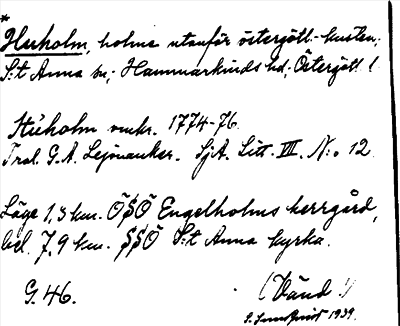 *
Huholm, holme utanför östergötl.-kusten;
S:t Anna sn; Hammarkinds hd; Östergötl. l.
Huholm omkr. 1774-76.
Trol. G. A. Lejonanker. SjA. Litt. VII. N:o 12.
Läge 1,3 km. ÖSÖ Engelholms herrgård,
bel. 7,9 km. SSÖ S:t Anna kyrka.
G. 46.
(Vänd!)
1939.